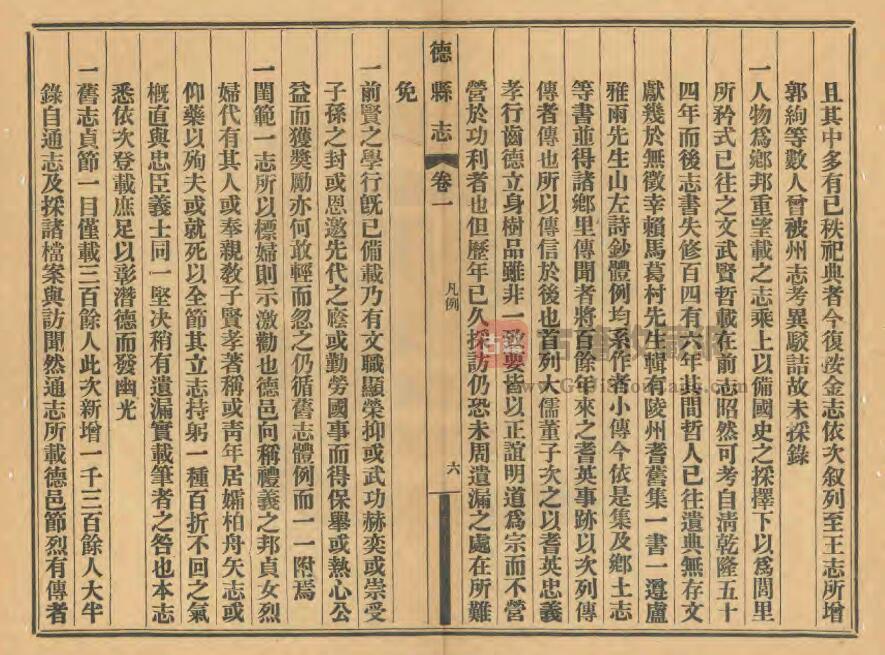 且其中多有已秩祀典者今復按金志依次叙列至王志所增
郭絢等數人曾被州志考異駁詰故未採錄
一人物爲鄉邦重望載之志乘上以備國史之採擇下以爲閭里
所矜式已往之文武賢哲載在前志昭然可考自淸乾隆五十
四年而後志書失修百四有六年其間哲人已往遺典無存文
獻幾於無徵幸賴馬葛村先生輯有陵州耆舊集一書一遵盧
雅雨先生山左詩鈔體例均系作者小傳今依是集及鄉土志
等書並得諸鄉里傳聞者將百餘年來之耆英事跡以次列傳
傳者傳也所以傳信於後也首列大儒董子次之以耆英忠義
孝行齒德立身樹品雖非一致要皆以正誼明道爲宗而不營
營於功利者也但歷年已久採訪仍恐未周遺漏之處在所難
德縣志 卷一 凡例 六
免
一前賢之學行旣已備載乃有文職顯榮抑或武功赫奕或崇受
子孫之封或恩邀先代之廕或勤勞國事而得保舉或熱心公
益而獲獎勵亦何敢輕而忽之仍循舊志體例而一一附焉
一閨範一志所以標婦則示激勸也德邑向稱禮義之邦貞女烈
婦代有其人或奉親敎子賢孝著稱或靑年居孀柏舟矢志或
仰藥以殉夫或就死以全節其立志持躬一種百折不回之氣
槪直與忠臣義士同一堅決稍有遺漏實載筆者之咎也本志
悉依次登載庶足以彰潛德而發幽光
一舊志貞節一目僅載三百餘人此次新增一千三百餘人大半
錄自通志及採諸檔案與訪聞然通志所載德邑節烈有傳者